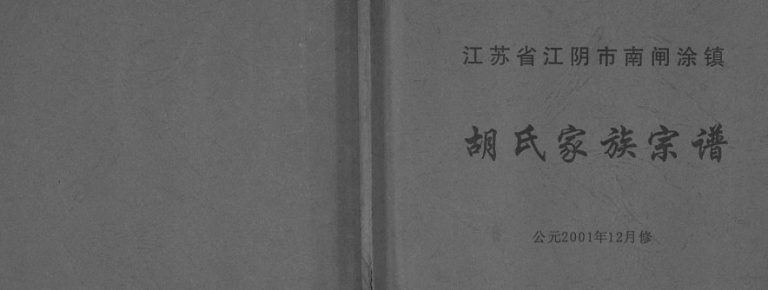 江苏省江阴市南闸涂镇
胡氏家族宗谱
公元2001年12月修